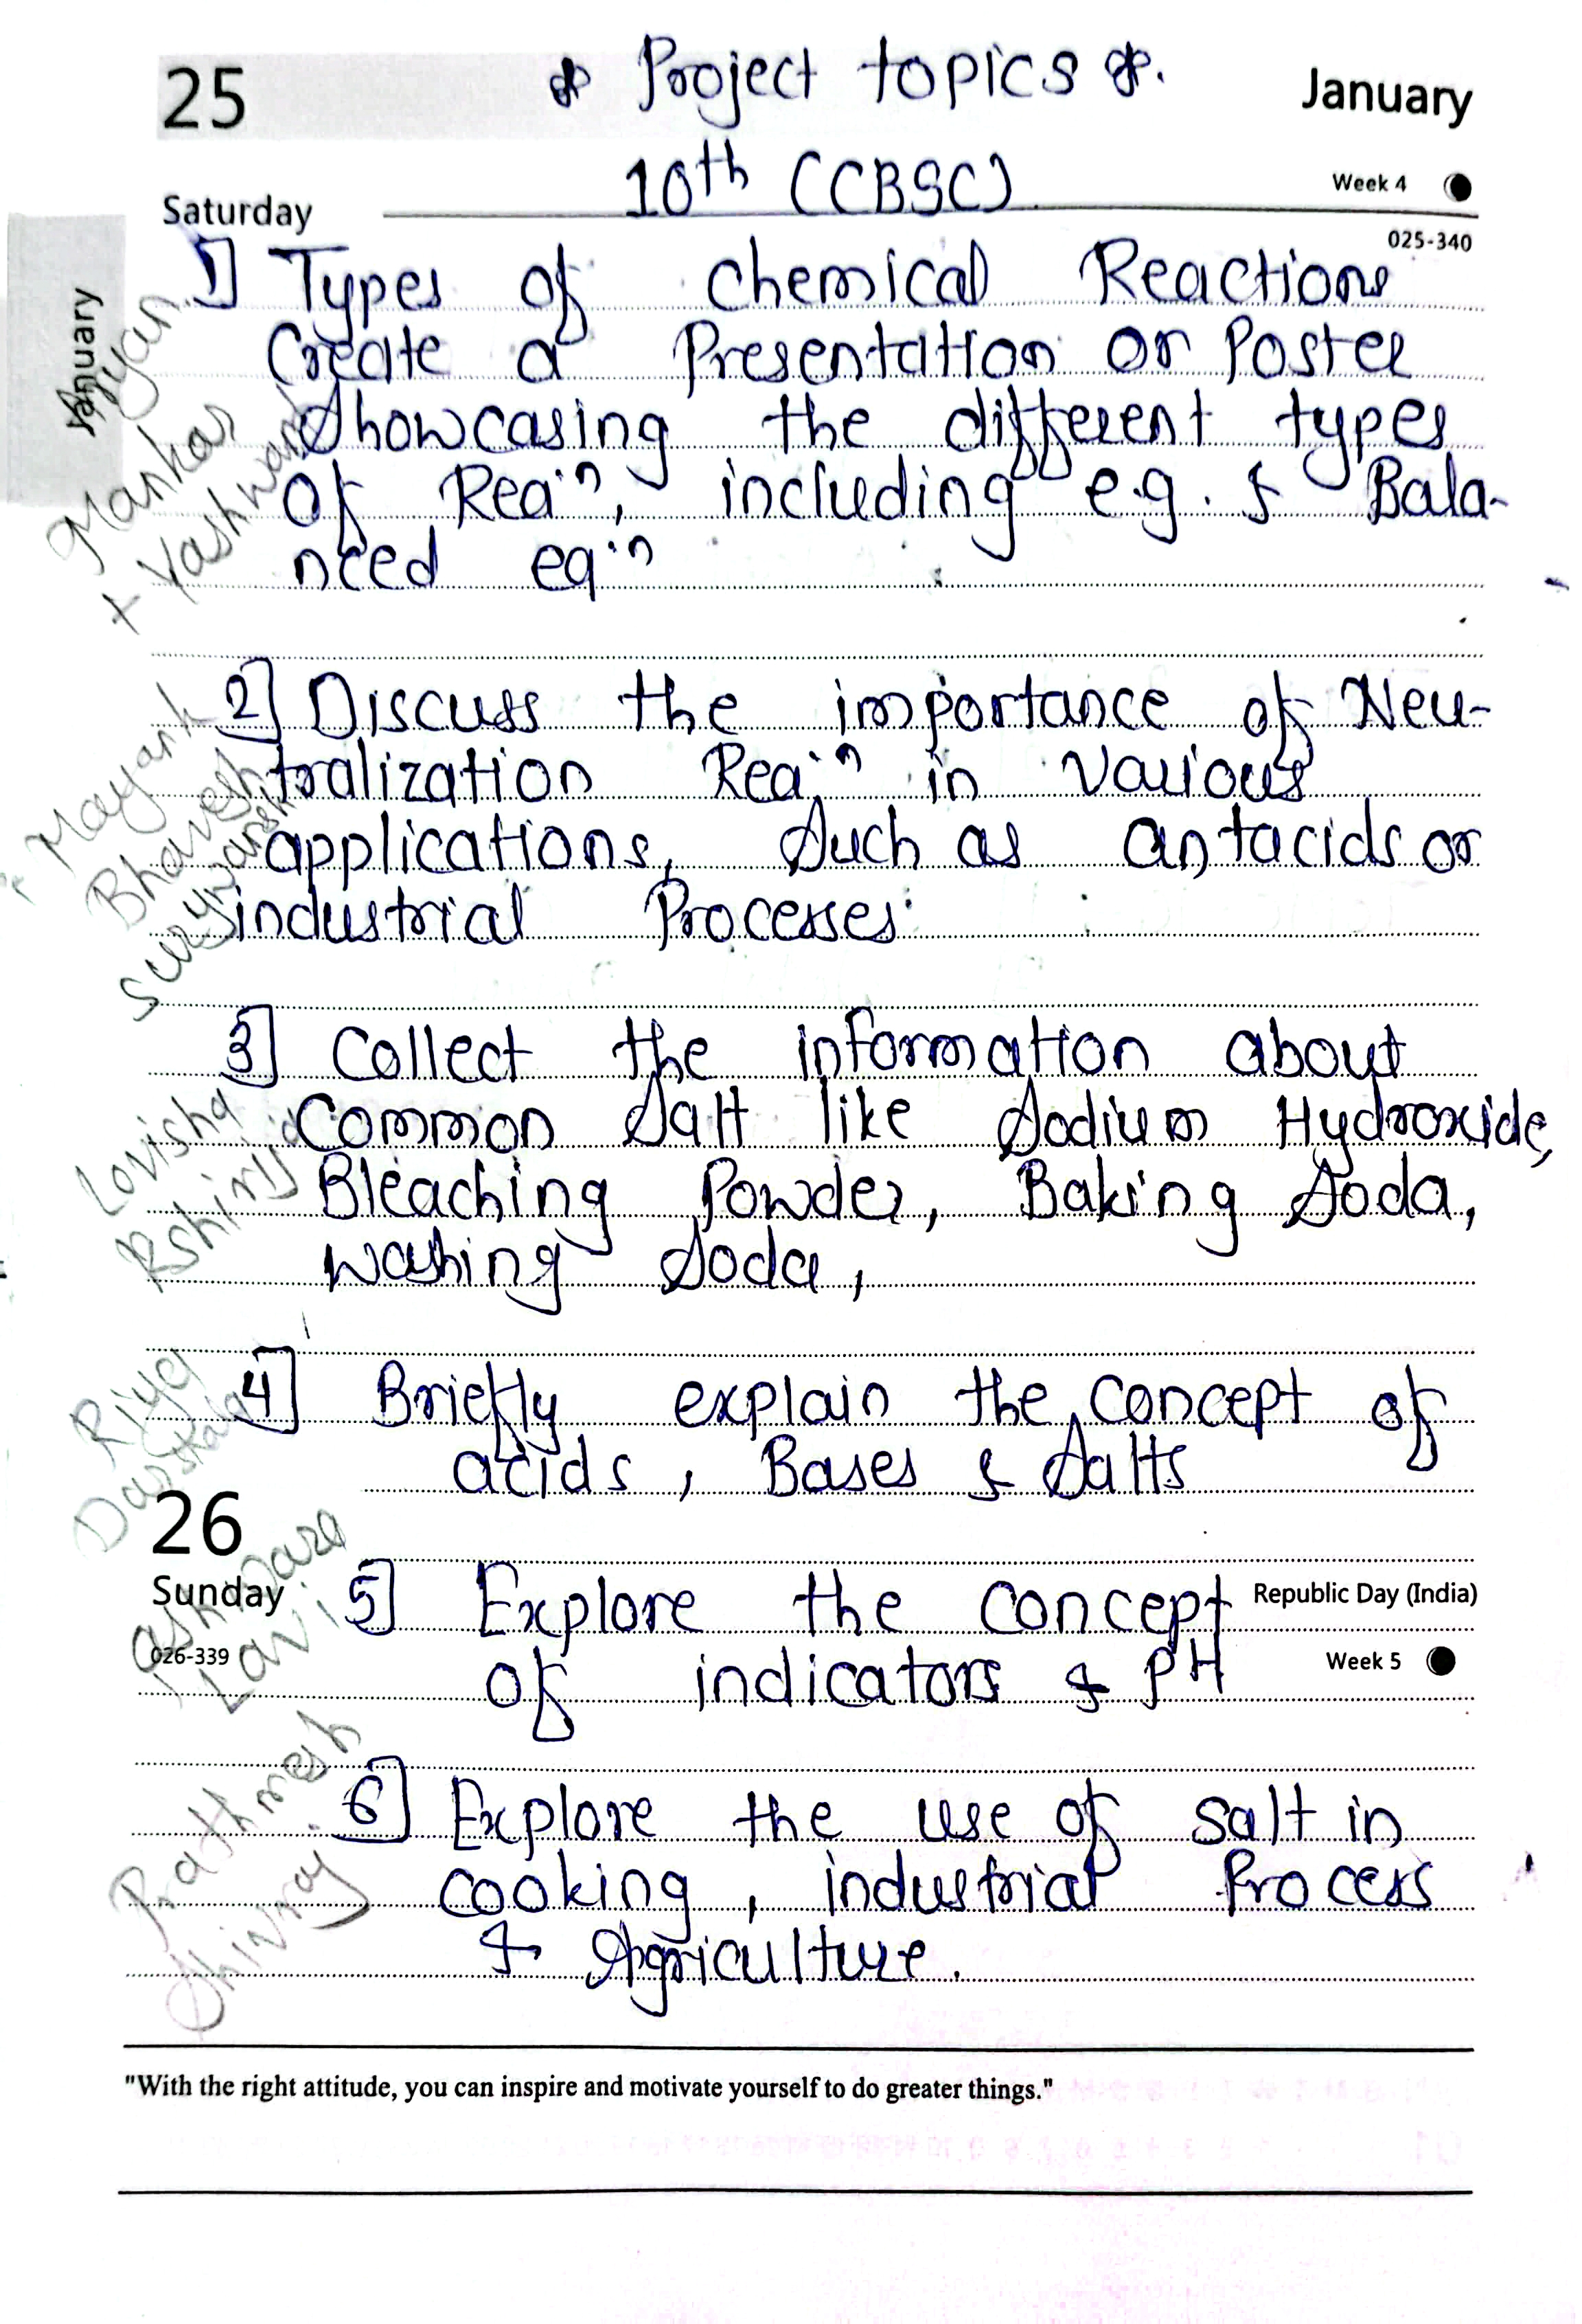 25
* Project topics *.
January
10th (CBSC)
Week 4
Saturday
025-340
January
1] Types of Chemical Reactions
Create a Presentation or Poster
Showcasing the different types
of Rea:n, including e.g. & Bala-
nced eq:n
Mankar
+ Yashwant
2] Discuss the importance of Neu-
tralization Rea:n in various
applications, Such as antacids or
industrial Processes
Mayank
Bhavesh
3] Collect the information about
Common Salt like Sodium Hydroxide,
Bleaching Powder, Baking Soda,
Washing Soda,
Lovisha
4] Briefly explain the concept of
acids, Bases & Salts
Riya
26
Sunday
5] Explore the concept
Republic Day (India)
026-339
of indicators & PH
Week 5
Lavi
6] Explore the use of salt in
cooking, industrial Process
& Agriculture.
Prathmesh
Shivray
"With the right attitude, you can inspire and motivate yourself to do greater things."